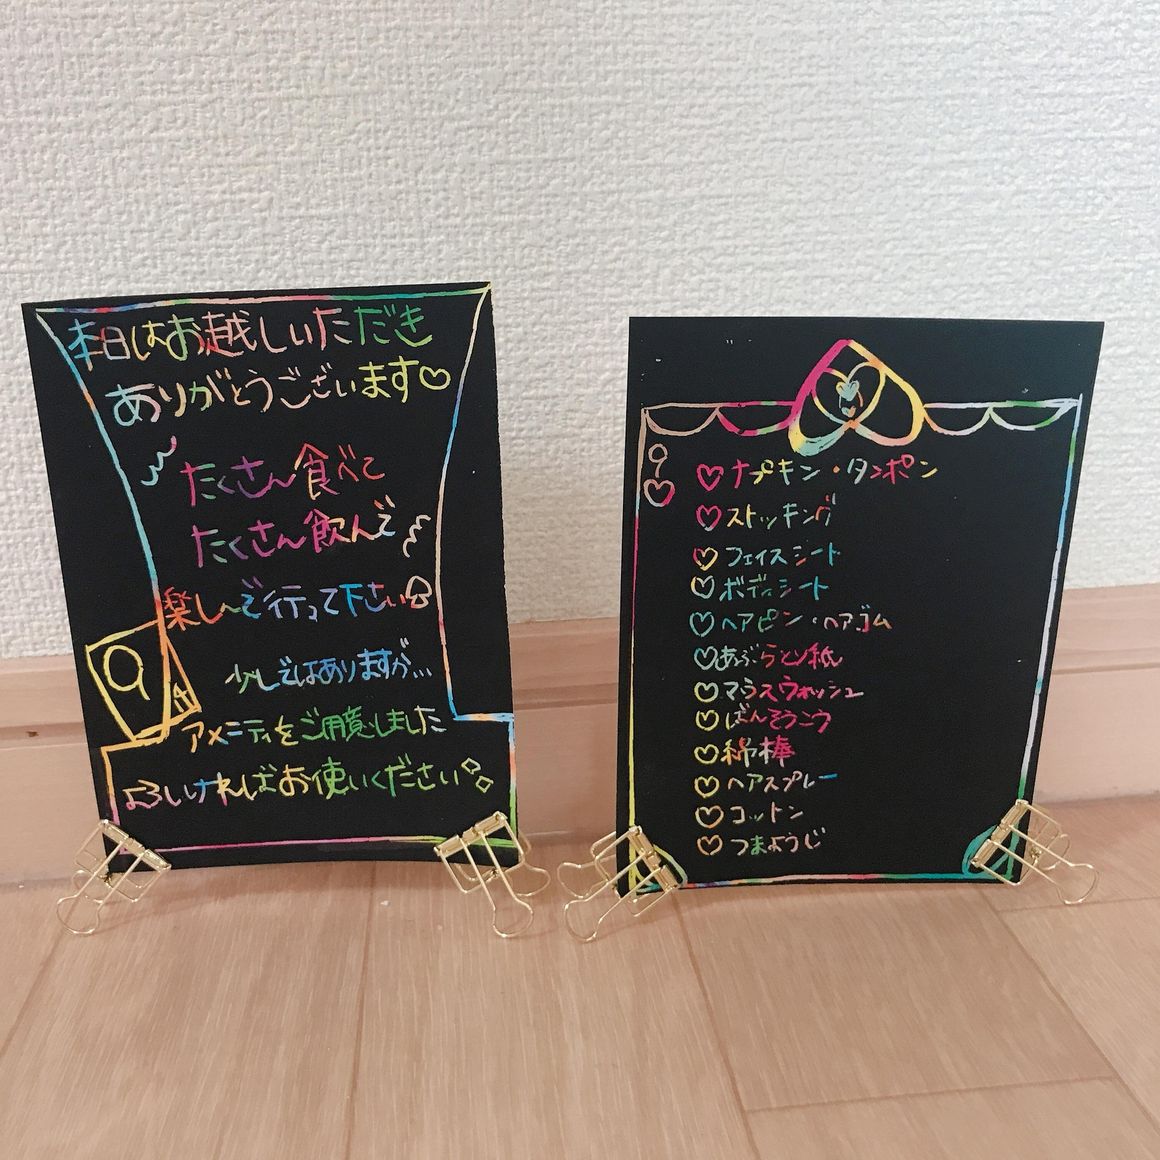 本日はお越しいただき
ありがとうございます♡
たくさん食べて
たくさん飲んで
楽しんで行って下さい
少しではありますが...
アメニティをご用意しました
よろしければお使いください
♡ナプキン・タンポン
♡ストッキング
♡フェイスシート
♡ボディシート
♡ヘアピン・ヘアゴム
♡あぶらとり紙
♡マウスウォッシュ
♡ばんそうこう
♡綿棒
♡ヘアスプレー
♡コットン
♡つまようじ